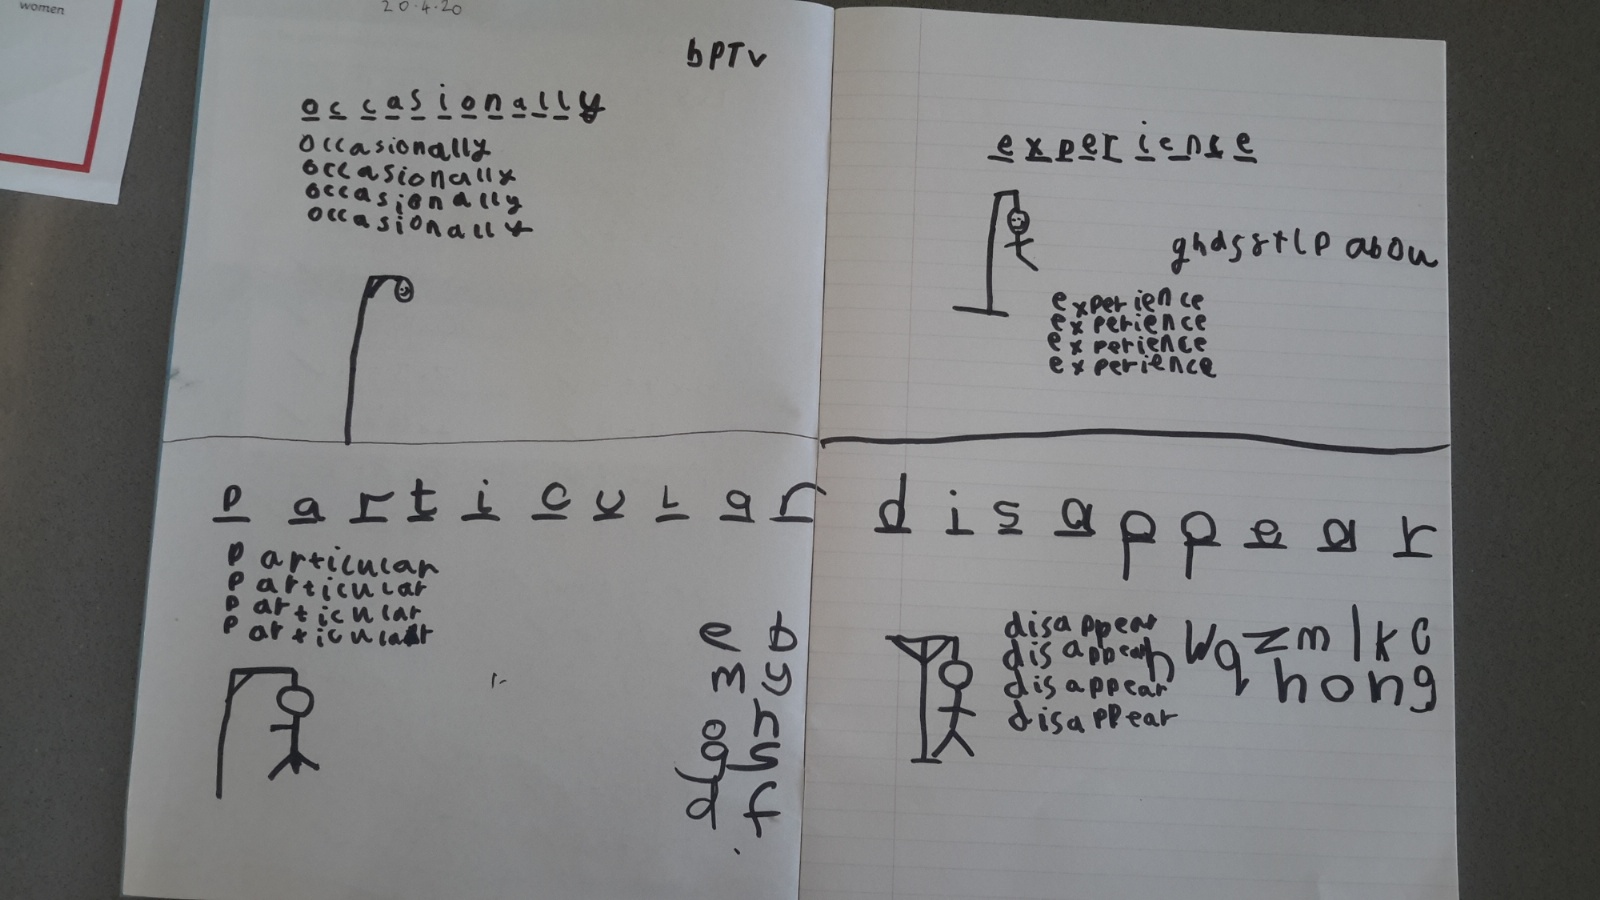 women
20.4.20
bPTv
occasionally
occasionally
occasionally
occasionally
occasionally
experience
ghdsstlp abou
experience
experience
experience
experience
particular
Particular
Particular
Particular
Particular
e b
m y
o n
g s
d f
disappear
disappear
disappear
disappear
disappear
Wqzmlkc
hong